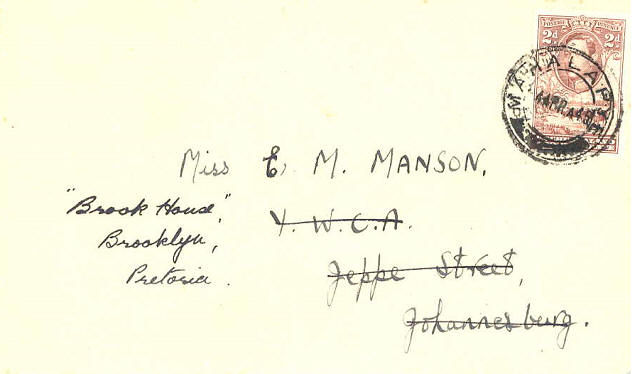 2d. POSTAGE REVENUE 2d.
MAHALAPYE
4 APR 49
Miss E. M. MANSON,
Y.W.C.A.
Jeppe Street,
Johannesburg.
"Brook House",
Brooklyn,
Pretoria.